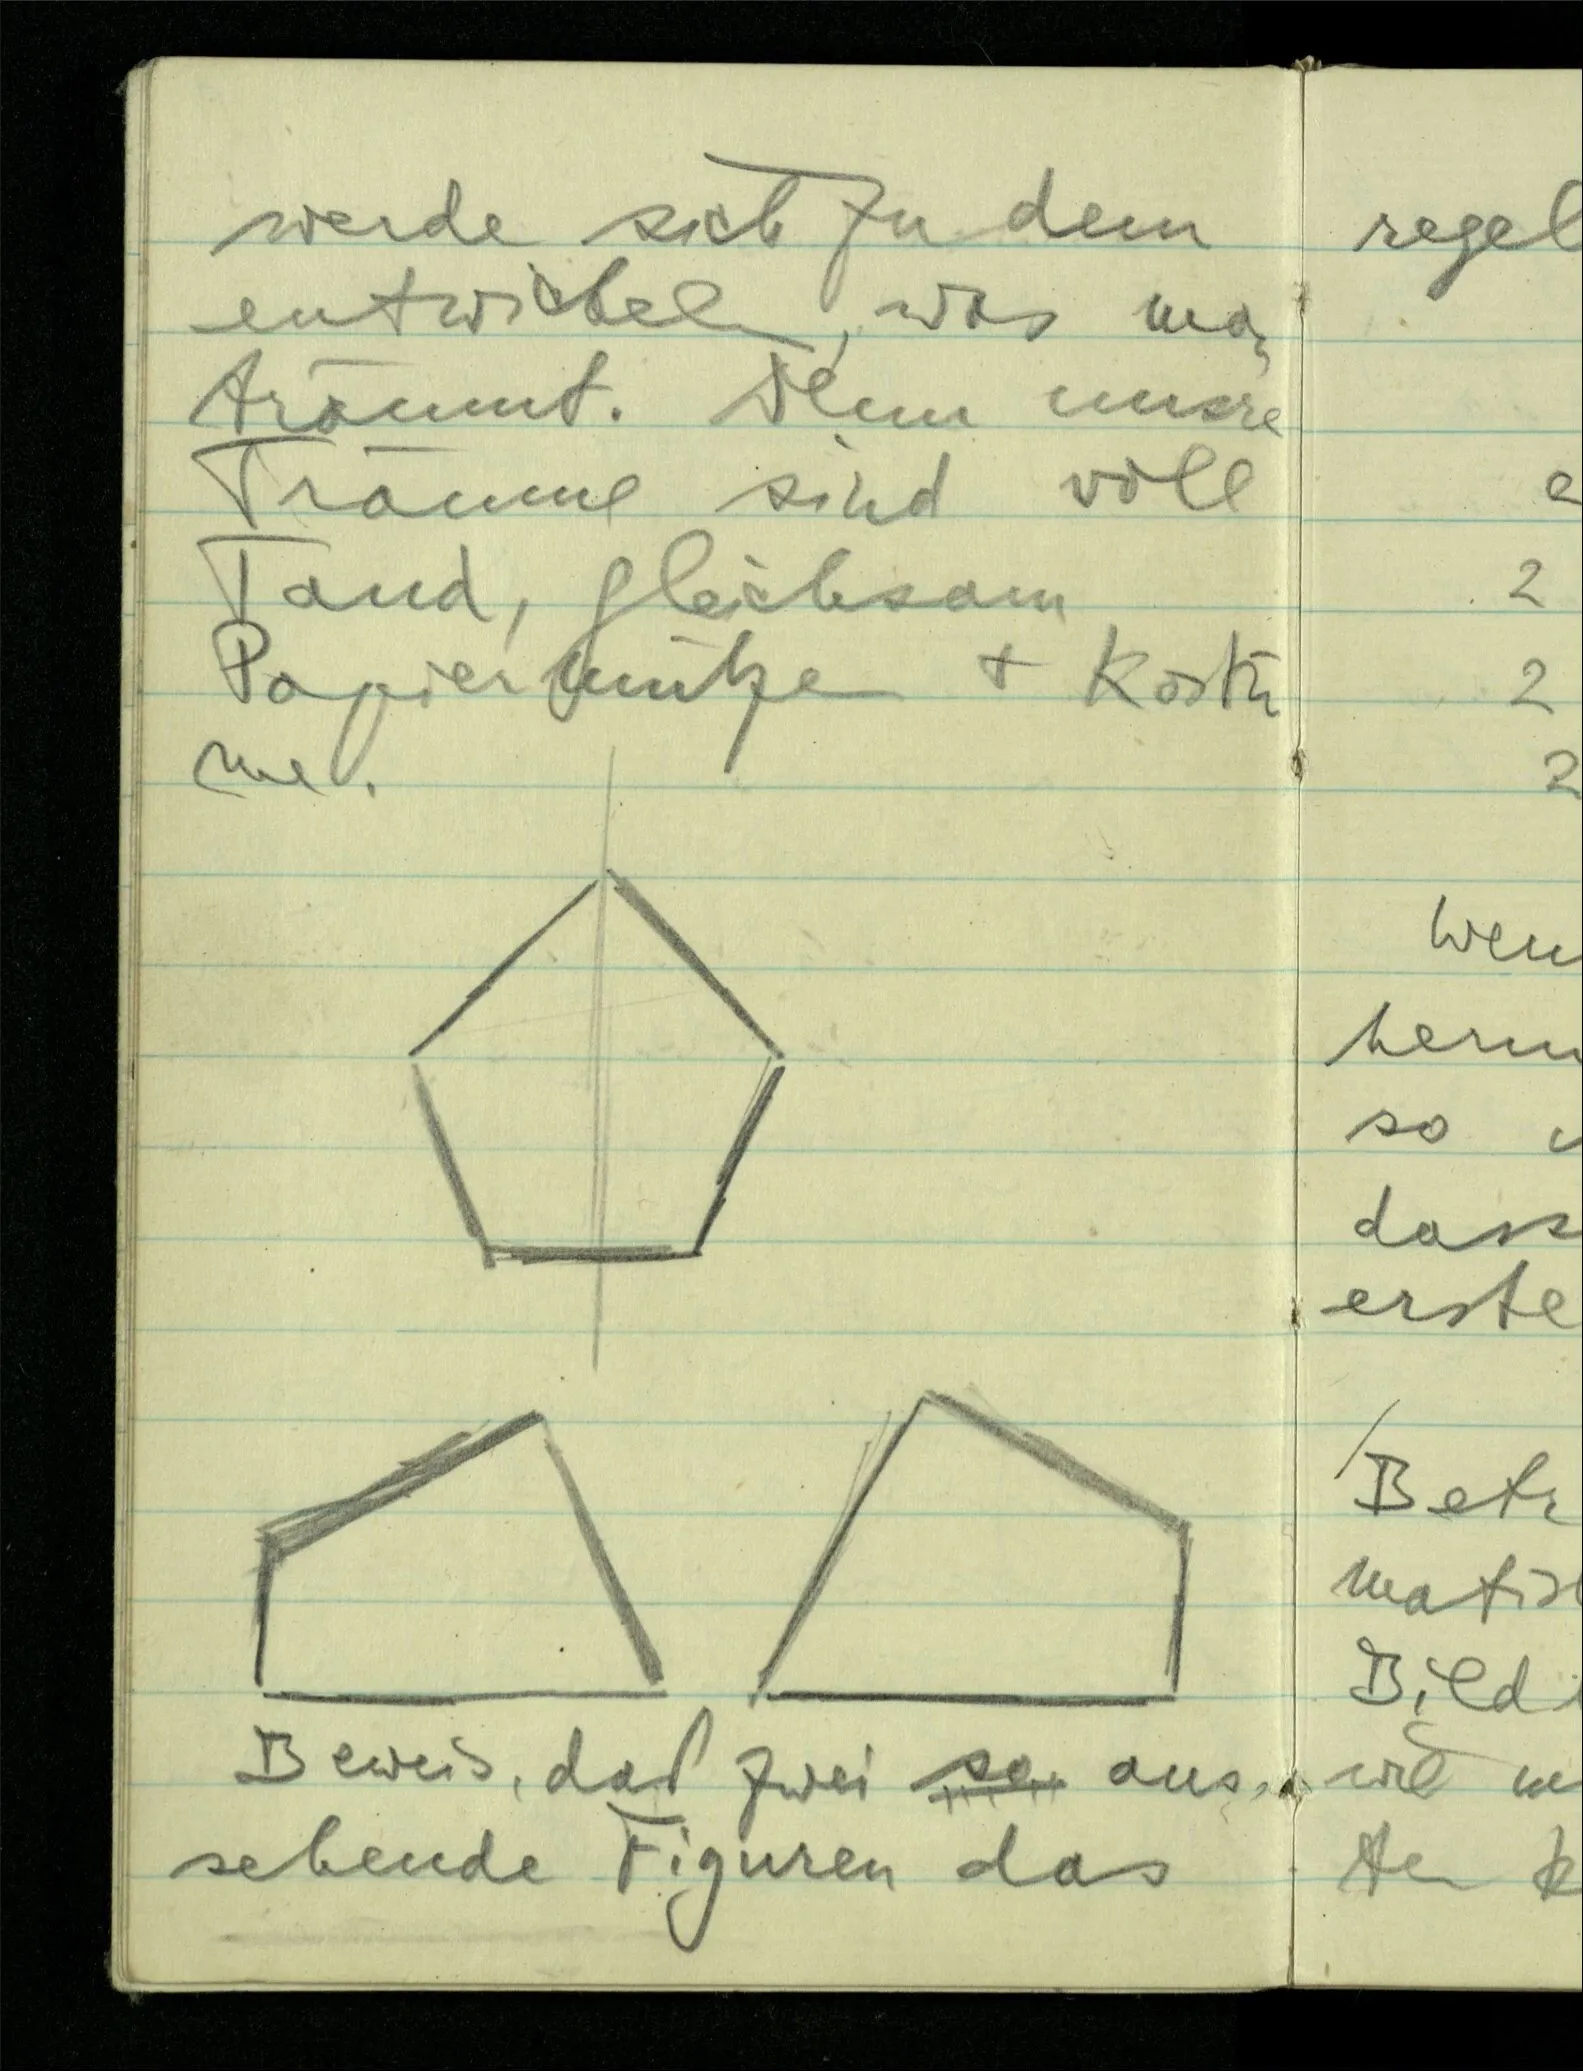 werde sich zu dem
entwickeln, was man
träumt. Denn unsre
Träume sind voll
Tand, gleichsam
Papiermütze + Kostü
me.
Beweis, daß zwei so aus-
sehende Figuren das
regel
e
2
2
2
Wen
herum
so
dass
erste
Betr
matisc
Bild
wie
ten k